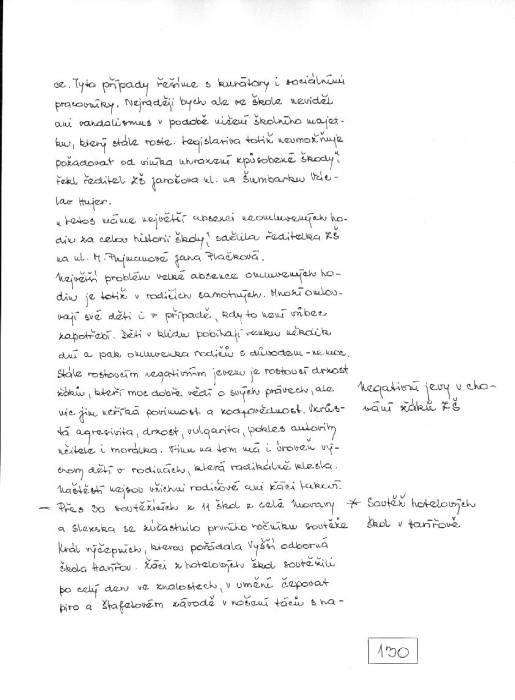 ve. Tyto případy řešíme s kurátory i sociálními
pracovníky. Nejraději bych ale ve škole neviděl
ani vandalismus v podobě ničení školního majet-
ku, který stále roste. Legislativa totiž neumožňuje
požadovat od viníka uhrazení způsobené škody",
řekl ředitel ZŠ Jarošova ul. na Šumbarku Vác-
lav Hujer.
"Letos máme největší absenci neomluvených ho-
din za celou historii školy", sdělila ředitelka ZŠ
na ul. M. Pujmanové Jana Plačková.
Největší problém velké absence omluvených ho-
din je totiž v rodičích samotných. Mnozí omlou-
vají své děti i v případě, kdy to není vůbec
zapotřebí. Děti v klidu pobíhají venku několik
dní a pak omluvenka rodičů s důvodem - nemoc.
Stále rostoucím negativním jevem je rostoucí drzost
žáků, kteří moc dobře vědí o svých právech, ale
víc jim neříká povinnost a zodpovědnost. Vzrůs-
tá agresivita, drzost, vulgarita, pokles autority
učitele i morálka. Vinu na tom má i úroveň vý-
chovy dětí v rodinách, která radikálně klesla.
Naštěstí nejsou všichni rodičové ani žáci takoví.
Negativní jevy v cho-
vání žáků ZŠ
- Přes 30 soutěžících z 11 škol z celé Moravy
a Slezska se zúčastnilo prvního ročníku soutěže
Král výčepních, kterou pořádala Vyšší odborná
škola Havířov. Žáci z hotelových škol soutěžili
po celý den ve znalostech, v umění čepovat
pivo a štafetovém závodě v nošení táců s na-
* Soutěž hotelových
škol v Havířově
130